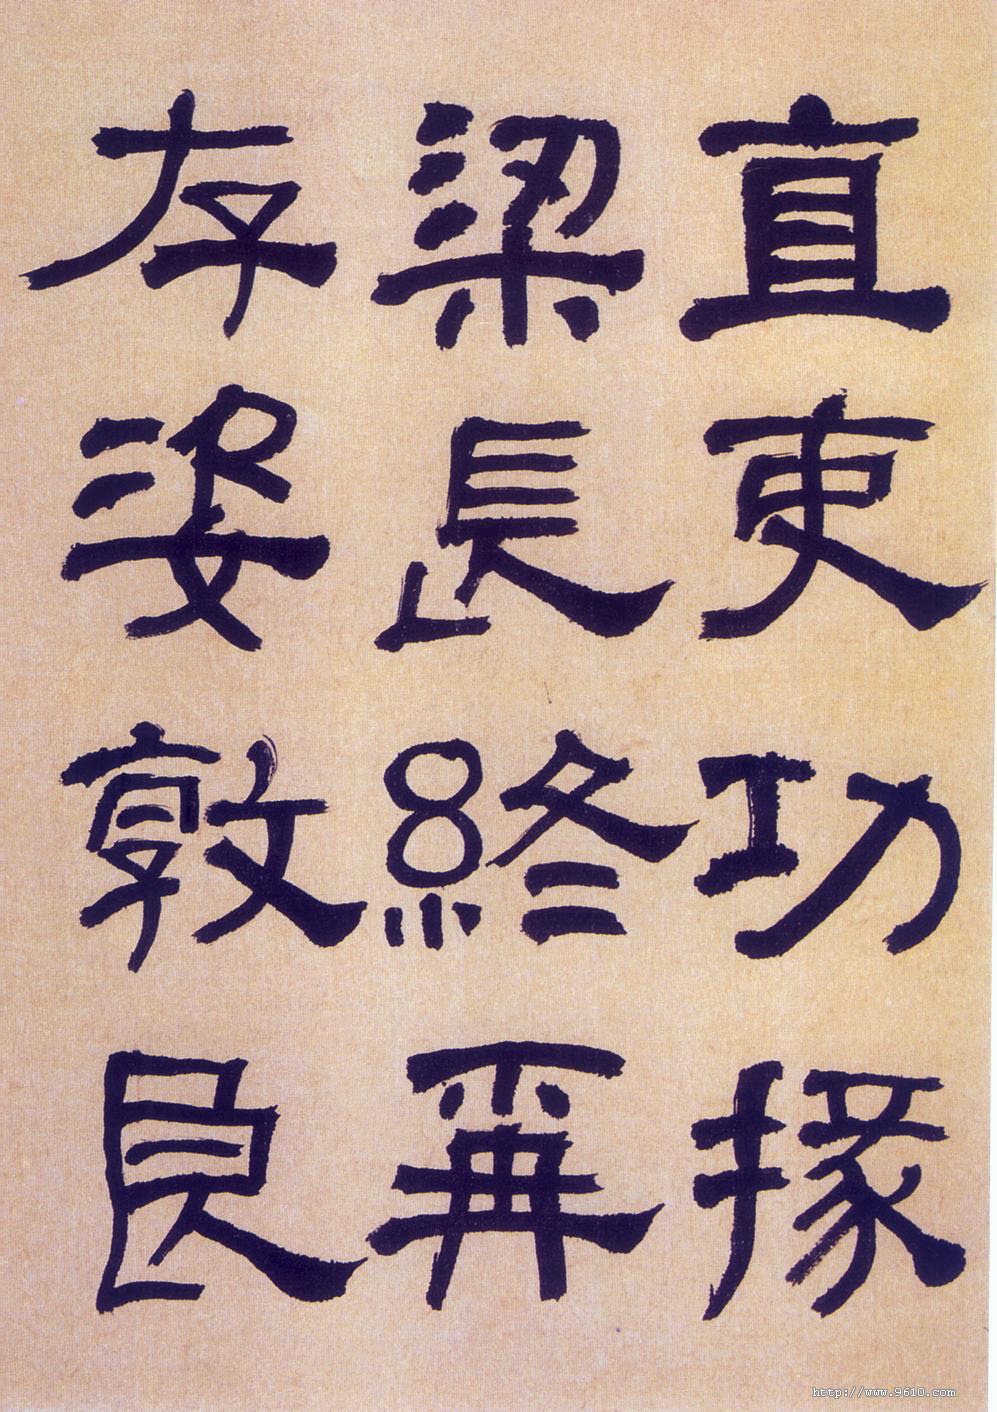 直吏功掾
梁長終再
存姿敦良
http://www.9610.com